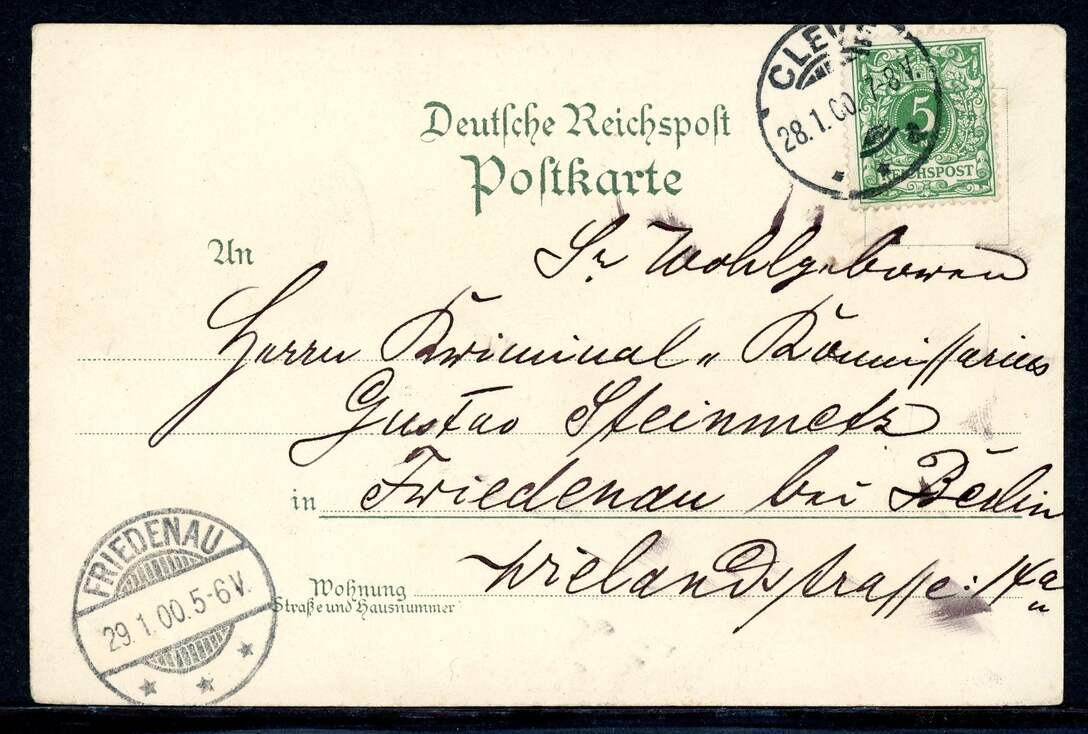 CLEVE
28.1.00.7-8V.
5
REICHSPOST
Deutsche Reichspost
Postkarte
An
Sr Wohlgeboren
Herrn Kriminal„ Kommissarius
Gustav Steinmetz
in Friedenau bei Berlin
Wohnung
Straße und Hausnummer
Wielandstrasse:
FRIEDENAU
29.1.00.5-6V.